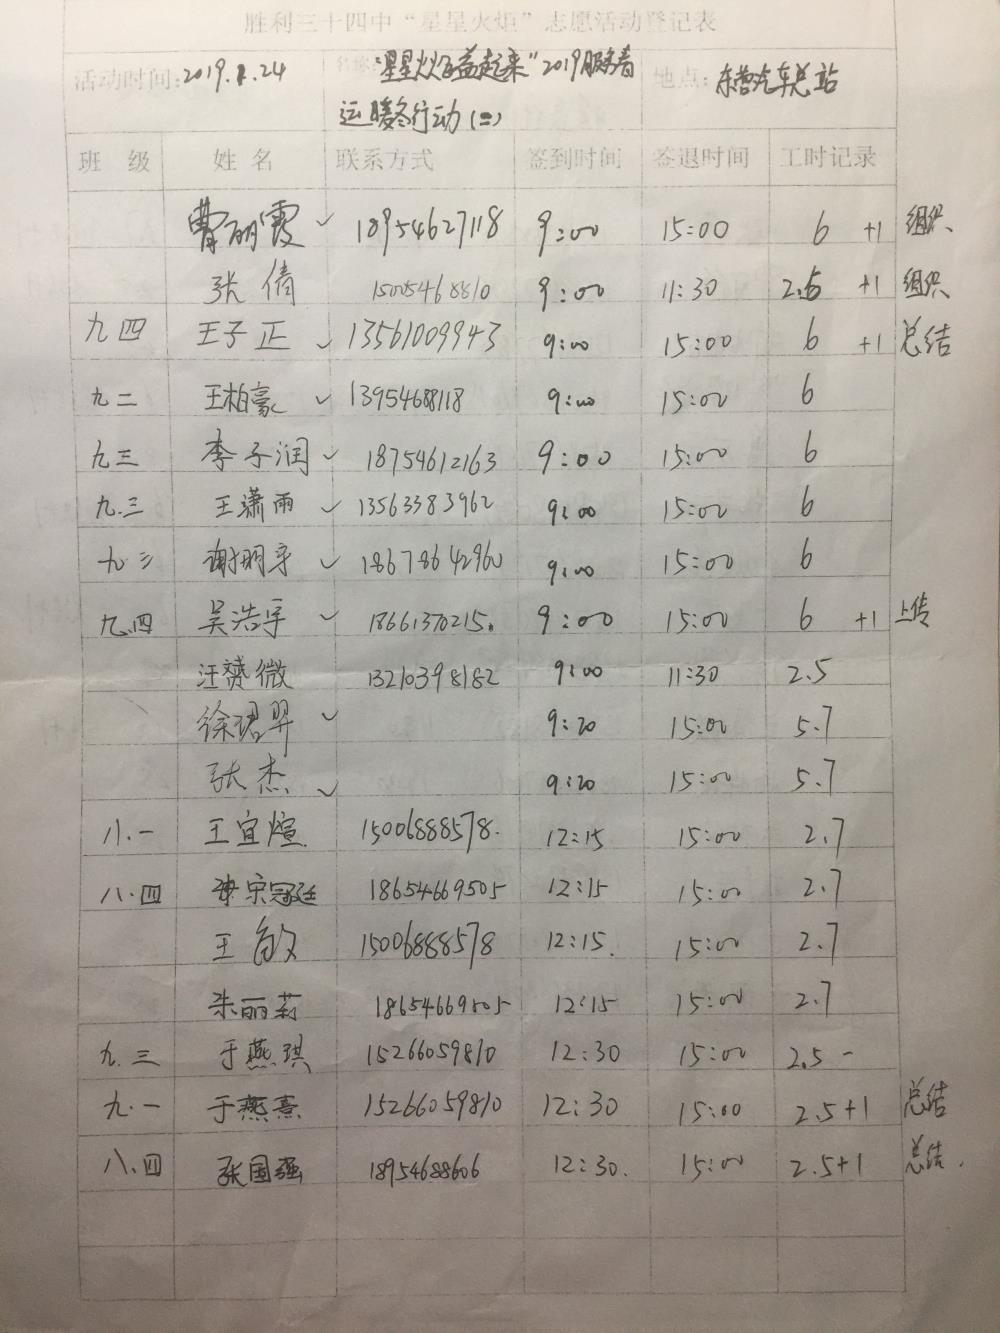 胜利三十四中“星星火炬”志愿活动登记表
活动时间:2019.1.24 名称:“星星火炬益起来”2019服务春 地点:东营汽车总站
运暖冬行动(二)
班级 姓名 联系方式 签到时间 签退时间 工时记录
曹丽霞 ✓ 18954627118 9:00 15:00 6 +1 组织
张倩 15005468810 9:00 11:30 2.5 +1 组织
九四 王子正 ✓ 13561009943 9:00 15:00 6 +1 总结
九二 王柏豪 ✓ 13954688118 9:00 15:00 6
九三 李子润 ✓ 18754612163 9:00 15:00 6
九.三 王潇雨 ✓ 13563383962 9:00 15:00 6
九.三 谢明宇 ✓ 18678642960 9:00 15:00 6
九.四 吴浩宇 ✓ 18661370215. 9:00 15:00 6 +1 上传
汪赟微 13210398182 9:00 11:30 2.5
徐珺羿 ✓ 9:20 15:00 5.7
张杰 ✓ 9:20 15:00 5.7
八.一 王宜煊 15006888578. 12:15 15:00 2.7
八.四 宋冠廷 18654669505 12:15 15:00 2.7
王敏 15006888578 12:15. 15:00 2.7
朱丽莉 18654669505 12:15 15:00 2.7
九.三 于燕琪 15266059810 12:30 15:00 2.5 -
九.一 于燕熹 15266059810 12:30 15:00 2.5+1 总结
八.四 张国强 18954688606 12:30. 15:00 2.5+1 总结.